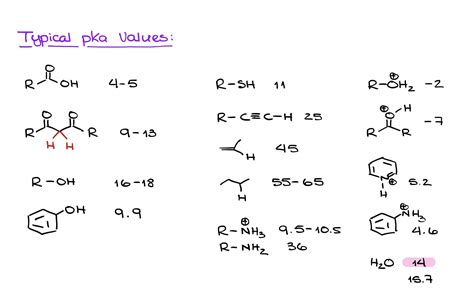 Typical pka Values:
O
R OH 4-5
O O
R R 9-13
H H
R-OH 16-18
OH 9.9
R-SH 11
R-C≡C-H 25
H 45
H 55-65
R-NH₃ ⊕ 9.5-10.5
R-NH₂ 36
R-OH₂ ⊕ -2
⊕ O H
R R -7
N ⊕ 5.2
H
⊕ NH₃ 4.6
H₂O 14
15.7